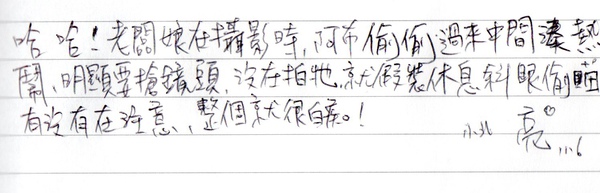 哈哈！老闆娘在攝影時,阿布偷偷過來中間湊熱
鬧,明顯要搶鏡頭,沒在拍牠就假裝休息斜眼偷瞄
有沒有在注意,整個就很白痴。！
小北 亮 11/6